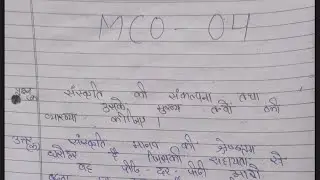 MCO - 04
प्रश्न संस्कृति की संकल्पना तथा
उसके मुख्य तत्वों की
व्याख्या कीजिए।
उत्तर संस्कृति मानव की श्रेष्ठतम
धरोहर है जिसकी सहायता से
वह पीढ़ी - दर - पीढ़ी आगे